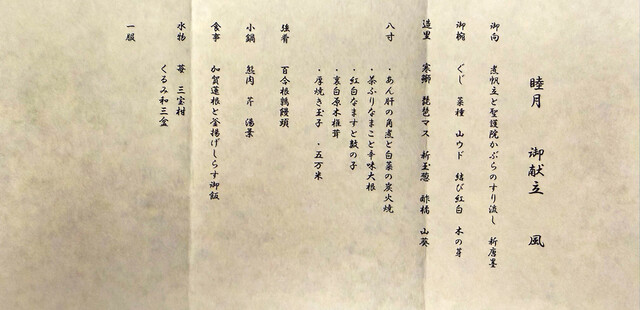 睦月 御献立 風
御向 煮帆立と聖護院かぶらのすり流し 新唐墨
御椀 ぐじ 菜種 山ウド 結び紅白 木の芽
造里 寒鰤 琵琶マス 新玉葱 酢橘 山葵
八寸 ・あん肝の角煮と白菜の炭火焼
・茶ぶりなまこと辛味大根
・紅白なますと数の子
・裏白原木椎茸
・厚焼き玉子 ・五万米
強肴 百合根鶉饅頭
小鍋 熊肉 芹 湯葉
食事 加賀蓮根と釜揚げしらす御飯
水物 苺 三宝柑
くるみ和三盆
一服